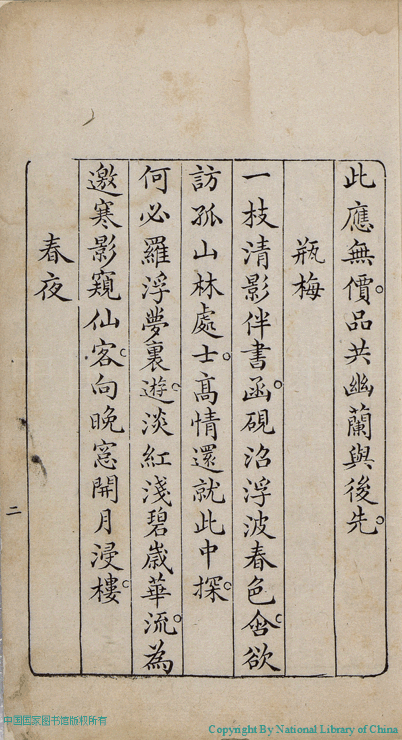 此應無價品共幽蘭與後先
瓶梅
一枝清影伴書函硯沼浮波春色含欲
訪孤山林處士高情還就此中探
何必羅浮夢裏遊淡紅淺碧歲華流為
邀寒影窺仙客向晚窓開月浸樓
春夜
二
中国国家图书馆版权所有
Copyright By National Library of China